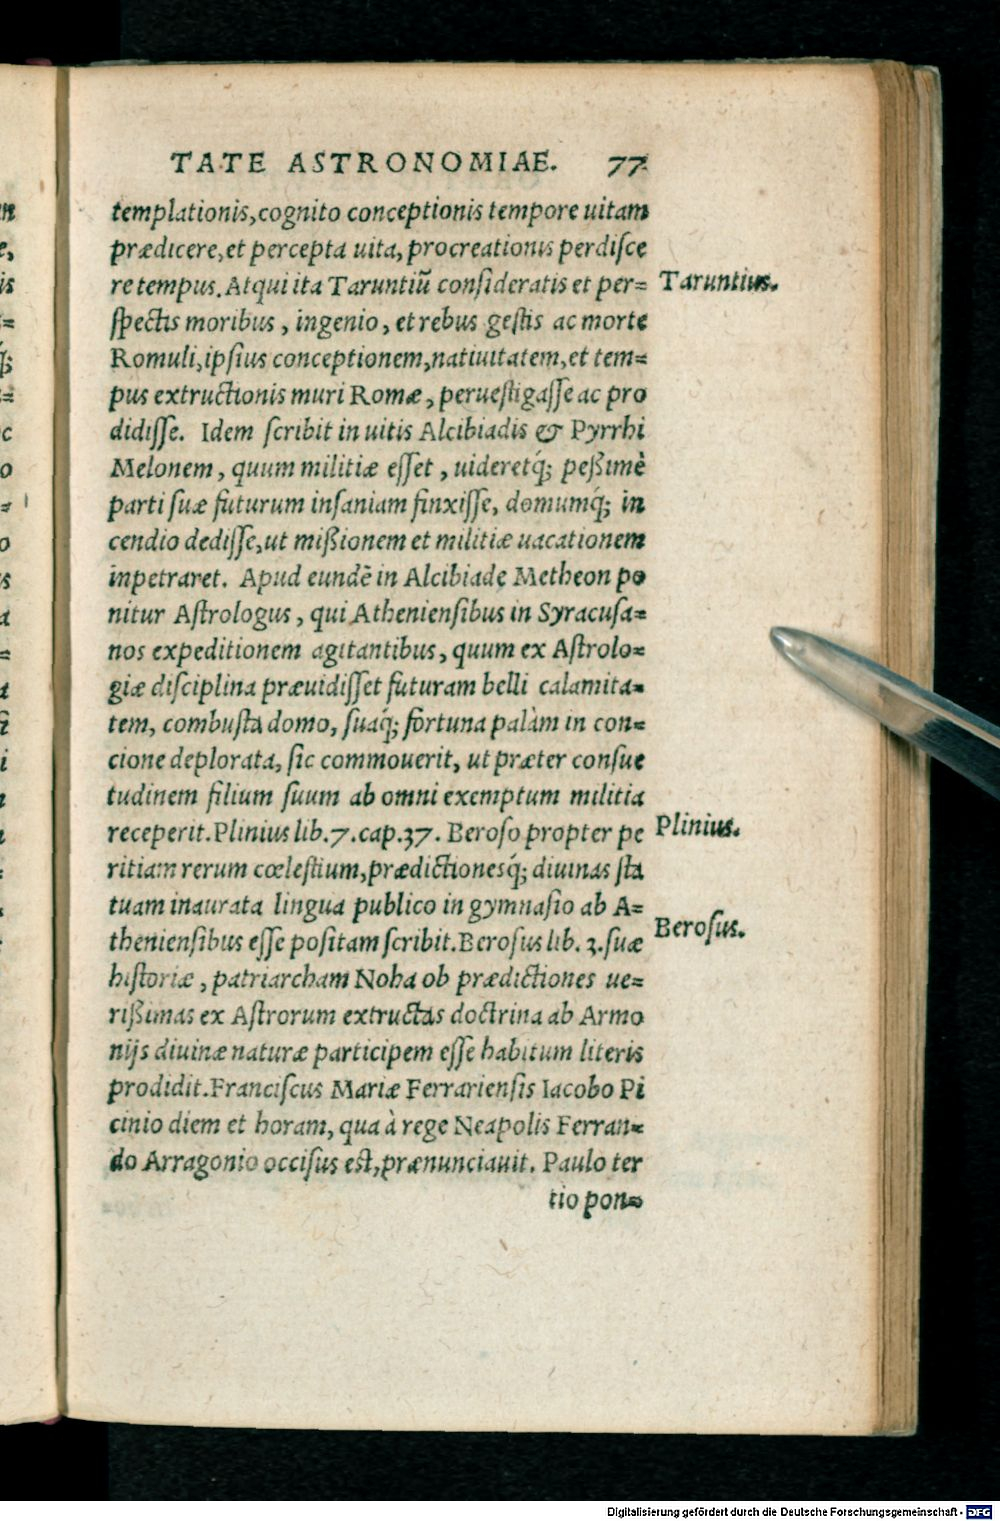 TATE ASTRONOMIAE. 77
templationis, cognito conceptionis tempore uitam
prædicere, et percepta uita, procreationis perdisce
re tempus. Atqui ita Taruntiũ consideratis et per=
Taruntius.
spectis moribus, ingenio, et rebus gestis ac morte
Romuli, ipsius conceptionem, natiuitatem, et tem=
pus extructionis muri Romæ, peruestigasse ac pro
didisse. Idem scribit in uitis Alcibiadis & Pyrrhi
Melonem, quum militiæ esset, uideretq́; peßimè
parti suæ futurum insaniam finxisse, domumq́; in
cendio dedisse, ut mißionem et militiæ uacationem
inpetraret. Apud eundẽ in Alcibiade Metheon po
nitur Astrologus, qui Atheniensibus in Syracusa=
nos expeditionem agitantibus, quum ex Astrolo=
giæ disciplina præuidisset futuram belli calamita=
tem, combusta domo, suaq́; fortuna palàm in con=
cione deplorata, sic commouerit, ut præter consue
tudinem filium suum ab omni exemptum militia
receperit. Plinius lib. 7. cap. 37. Beroso propter pe
Plinius.
ritiam rerum cœlestium, prædictionesq́; diuinas sta
tuam inaurata lingua publico in gymnasio ab A=
theniensibus esse positam scribit. Berosus lib. 3. suæ
Berosus.
historiæ, patriarcham Noha ob prædictiones ue=
rißimas ex Astrorum extructas doctrina ab Armo
nijs diuinæ naturæ participem esse habitum literis
prodidit. Franciscus Mariæ Ferrariensis Iacobo Pi
cinio diem et horam, qua à rege Neapolis Ferran=
do Arragonio occisus est, prænunciauit. Paulo ter
tio pon=
Digitalisierung gefördert durch die Deutsche Forschungsgemeinschaft - DFG